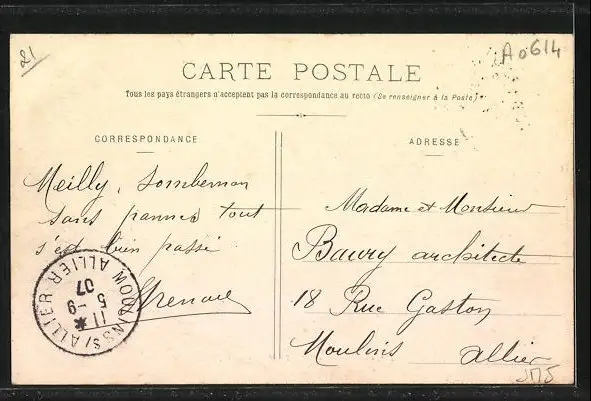 21
A0614
CARTE POSTALE
Tous les pays étrangers n'acceptent pas la correspondance au recto (Se renseigner à la Poste)
CORRESPONDANCE
Meilly, Sombernon
sans pannes tout
s'est bien passé
ADRESSE
Madame et Monsieur
Baury architecte
18 Rue Gaston
Moulins Allier
MOULINS S/ ALLIER ALLIER
11 *
5 -9
07